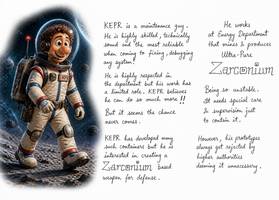 KEPR is a maintenance guy.
He is highly skilled, technically
sound and the most reliable
when coming to fixing, debugging
any system!
He is highly respected in
the department but his work has
a limited role. KEPR believes
he can do so much more !!
But it seems the chance
never comes.
KEPR has developed many
such containers but he is
interested in creating a
Zarconium based
weapon for defense.
He works
at Energy Department
that mines & produces
Ultra-Pure
Zarconium
Being so unstable.
It needs special care
& supervision just to
contain it.
However, his prototypes
always get rejected by
higher authorities
deeming it unnecessary.